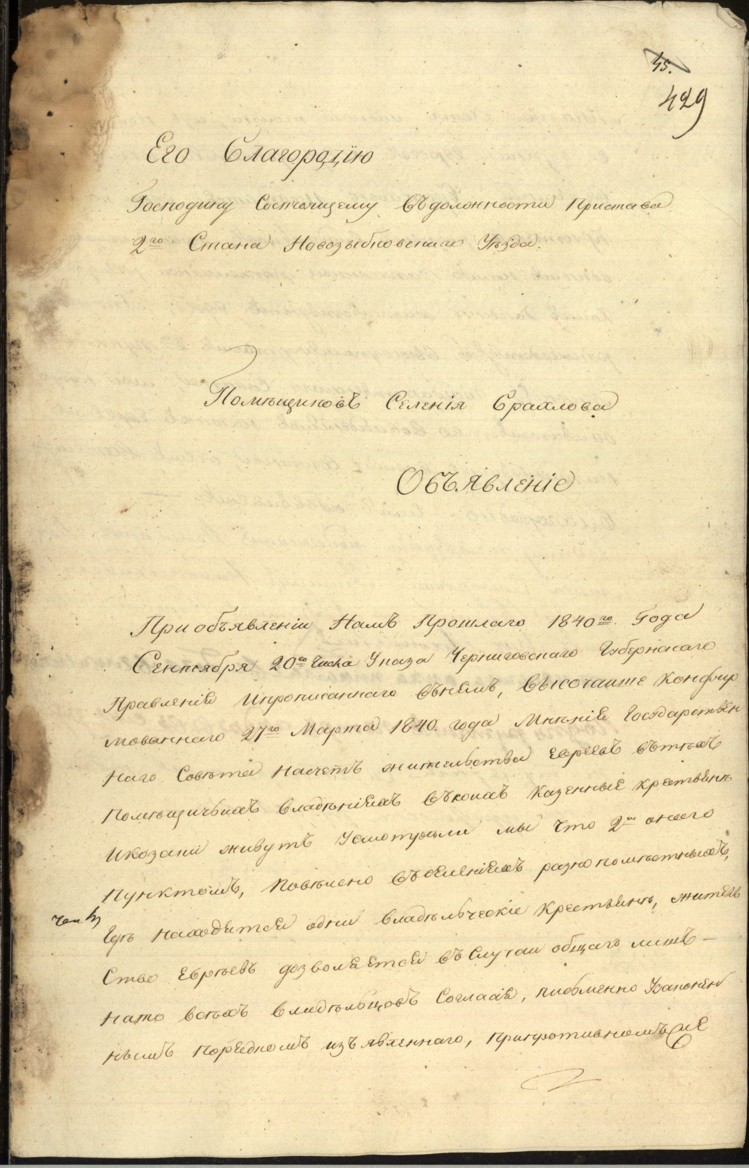 45.
429
Его Благородію
Господину Состоящему въ должности Пристава
2го Стана Новозыбковскаго Уѣзда.
Помѣщиковъ Селенія Брахлова
Объявленіе
При объявленіи Намъ Прошлаго 1840го Года
Сентября 20го числа Указа Черниговскаго Губернскаго
Правленія И прописаннаго въ нѣмъ, Высочайше Конфир
мованнаго 27го Марта 1840 года Мнѣнія Государствен
наго Совѣта Насчетъ жительства Евреевъ вътѣхъ
Помѣщичьихъ Владѣніяхъ въкоихъ Казенные крестьянѣ
и козаки живутъ Усмотрѣли мы что 2мъ онаго
Пунктомъ, Повелено въселеніяхъ разнопомѣстныхъ,
гдѣ находятся одни владѣльческіе Крестьянѣ, житель
ство Евреевъ дозволяется въ Случаи общаго
нато всѣхъ Владѣльцовъ Согласія, письменно Узаконен
нымъ Порядкомъ изъявленнаго, Припротивномъ